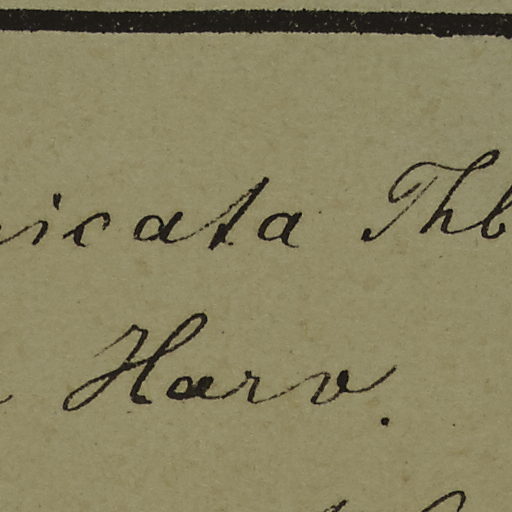 icata Thb
Harv.